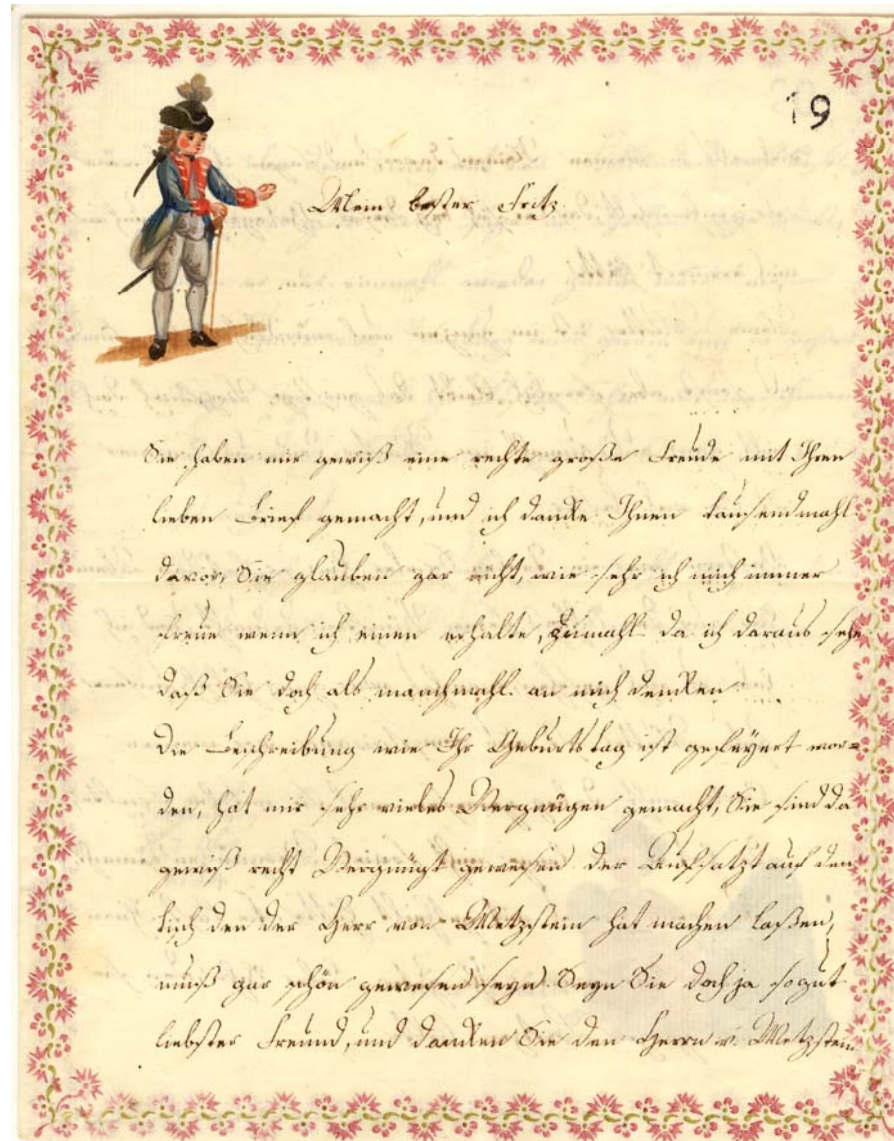 19
Mein bester Fritz.
Sie haben mir gewiß eine rechte große Freude mit Ihren
lieben Brief gemacht, und ich danke Ihnen tausendmahl
davor, Sie glauben gar nicht, wie sehr ich mich immer
freue wenn ich einen erhalte, zumahl da ich daraus sehe
daß Sie doch als manchmahl an mich denken.
Die Beschreibung wie Ihr Geburtstag ist gefeÿert wor=
den, hat mir sehr vieles Vergnügen gemacht, Sie sind da
gewiß recht Vergnügt gewesen. der Aufsatzt auf den
tisch den der Herr von Metzstein hat machen laßen,
muß gar schön gewesen seyn. Seyn Sie doch ja so gut
liebster Freund, und danken Sie den Herrn v. Metzstein